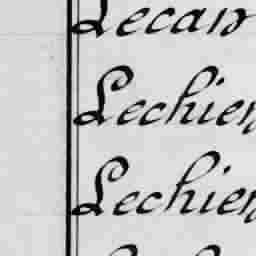 Lecan
Lechien
Lechien